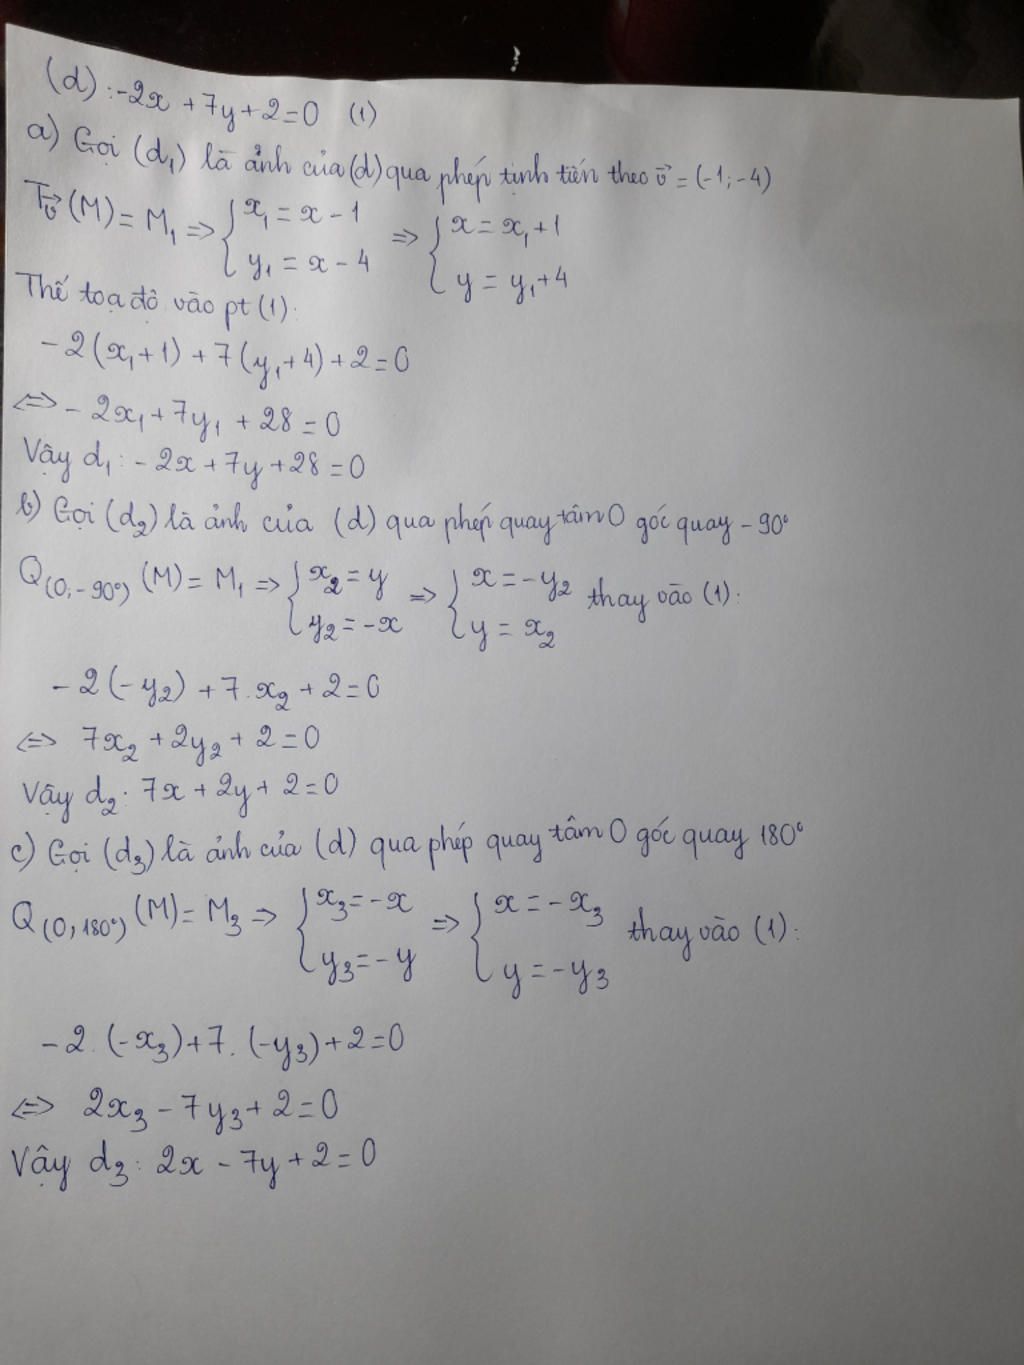 (d): -2x + 7y + 2 = 0 (1)
a) Gọi (d₁) là ảnh của (d) qua phép tịnh tiến theo v⃗ = (-1; -4)
T_v⃗ (M) = M₁ => { x₁ = x - 1 => { x = x₁ + 1
y₁ = x - 4 y = y₁ + 4
Thế toạ độ vào pt (1):
-2(x₁ + 1) + 7(y₁ + 4) + 2 = 0
<=> - 2x₁ + 7y₁ + 28 = 0
Vậy d₁: - 2x + 7y + 28 = 0
b) Gọi (d₂) là ảnh của (d) qua phép quay tâm O góc quay - 90°
Q(O; -90°) (M) = M₁ => { x₂ = y => { x = -y₂ thay vào (1):
y₂ = -x y = x₂
- 2(-y₂) + 7.x₂ + 2 = 0
<=> 7x₂ + 2y₂ + 2 = 0
Vậy d₂: 7x + 2y + 2 = 0
c) Gọi (d₃) là ảnh của (d) qua phép quay tâm O góc quay 180°
Q(O, 180°) (M) = M₃ => { x₃ = -x => { x = -x₃ thay vào (1):
y₃ = -y y = -y₃
-2.(-x₃) + 7.(-y₃) + 2 = 0
<=> 2x₃ - 7y₃ + 2 = 0
Vậy d₃: 2x - 7y + 2 = 0